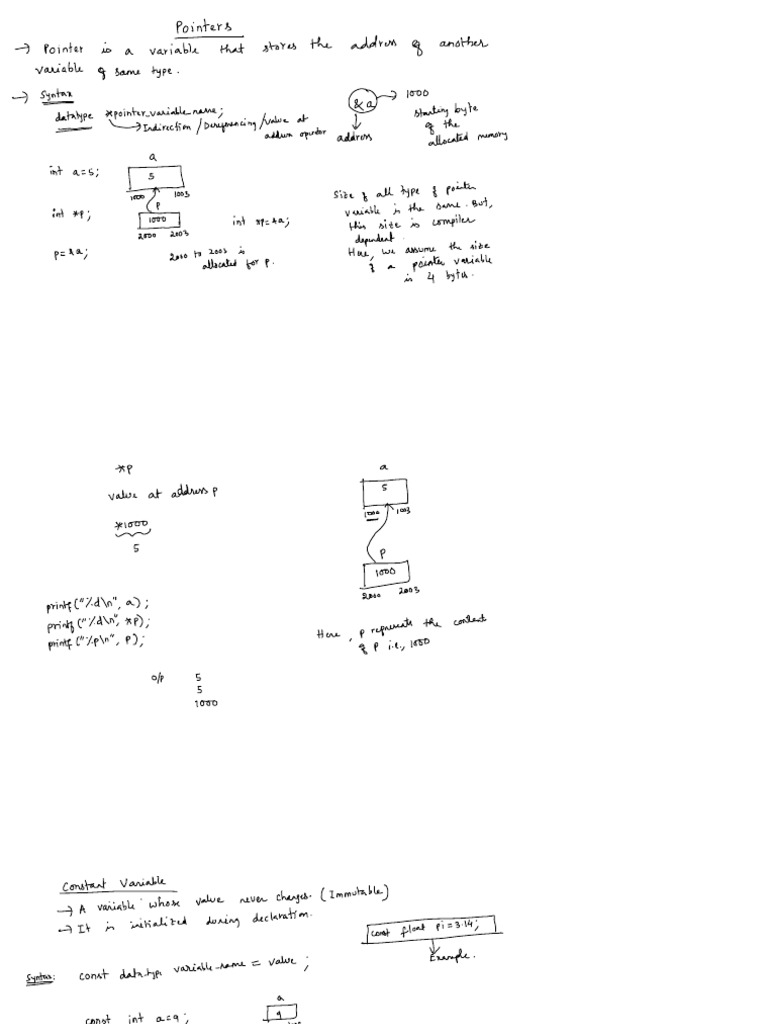 Pointers
→ Pointer is a variable that stores the address of another
variable of same type.
→ Syntax
datatype *pointer_variable_name;
→ Indirection / Dereferencing / Value at
address operator
&a → 1000
address
starting byte
of the
allocated memory
int a=5;
a
5
1000 1003
int *p;
p
1000
2000 2003
int *p=&a;
p=&a;
2000 to 2003 is
allocated for p.
Size of all type of pointer
variable is the same. But,
this size is compiler
dependent.
Here, we assume the size
of a pointer variable
is 4 bytes.
*p
value at address p
*1000
5
a
5
1000 1003
p
1000
2000 2003
printf("%d\n", a);
printf("%d\n", *p);
printf("%p\n", p);
Here, p represents the content
of p i.e., 1000
o/p 5
5
1000
Constant Variable
→ A variable whose value never changes. (Immutable)
→ It is initialized during declaration.
const float pi=3.14;
Example.
Syntax: const data-type variable-name = value;
const int a=9;
a
9